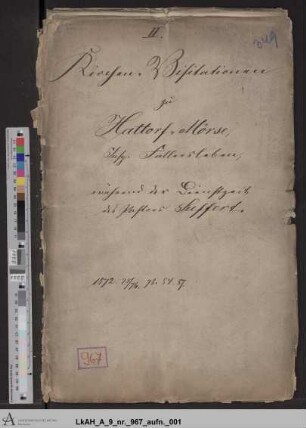 II.
349
Kirchen-Visitationen
zu
Hattorf-Mörse,
Insp. Fallersleben,
während der Dienstzeit
des Pastors Seffert.
967
LkAH_A_9_nr._967_aufn._001